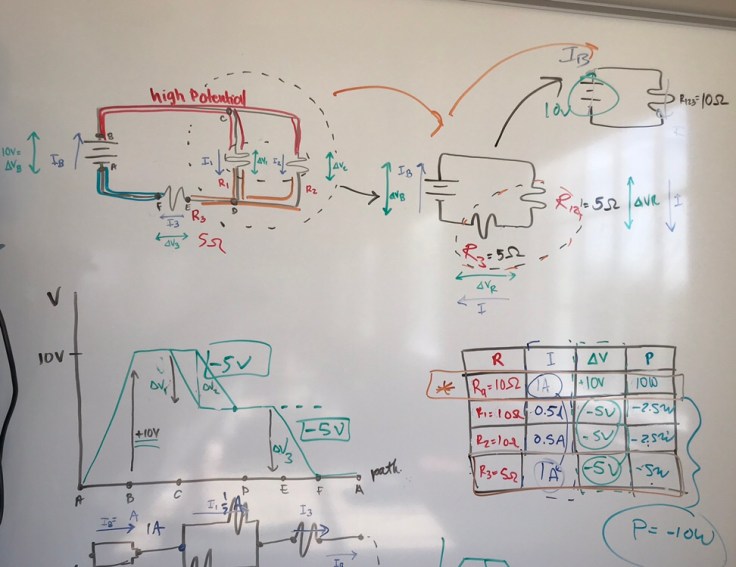 high Potential
B
A
10V=
ΔVB
IB
C
I1
ΔV1
I2
ΔV2
R1
R2
F
E
D
R3
I3
ΔV3
5Ω
IB
10V
R123=10Ω
IB
ΔVB
R12=5Ω
ΔVR
I
R3=5Ω
ΔVR
I
V
10V
-5V
ΔV1
ΔV2
+10V
-5V
ΔV3
A B C D E F A
path
R I ΔV P
* Rq=10Ω 1A +10V 10W
R1=10Ω 0.5A -5V -2.5W
R2=10Ω 0.5A -5V -2.5W
R3=5Ω 1A -5V -5W
P=-10W
IB= A 1A
I1
I3